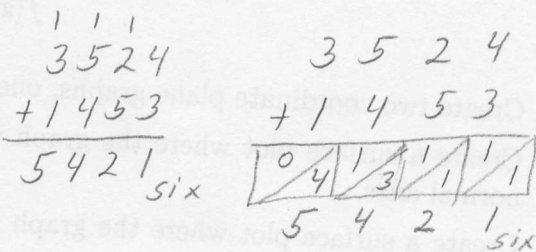 1 1 1
3 5 2 4
+ 1 4 5 3
5 4 2 1 six
3 5 2 4
+ 1 4 5 3
0 4 1 3 1 1 1
5 4 2 1 six